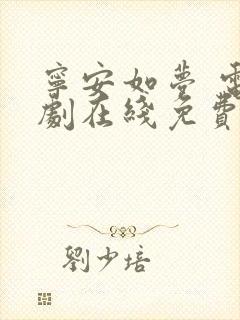 寧安如夢 電
劇在綫免費
劉少培